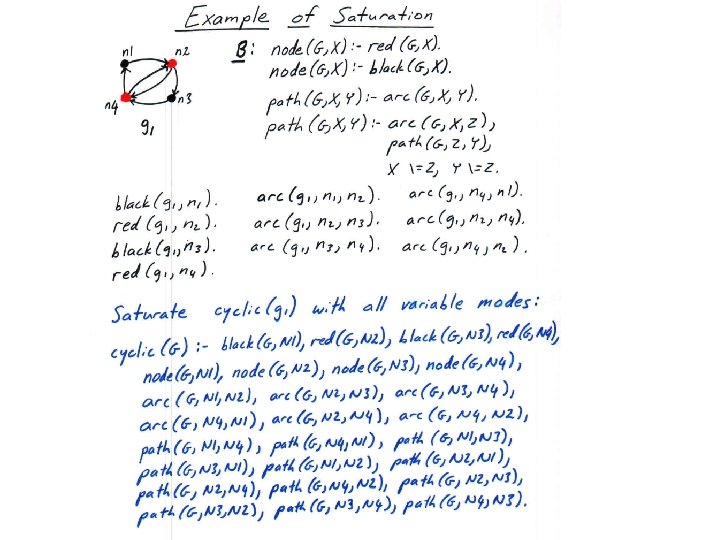 Example of Saturation
n1 n2
n4 n3
g1
B: node(G,X) :- red(G,X).
node(G,X) :- black(G,X).
path(G,X,Y) :- arc(G,X,Y).
path(G,X,Y) :- arc(G,X,Z),
path(G,Z,Y),
X \=Z, Y \=Z.
black(g1,n1). arc(g1,n1,n2). arc(g1,n4,n1).
red(g1,n2). arc(g1,n2,n3). arc(g1,n2,n4).
black(g1,n3). arc(g1,n3,n4). arc(g1,n4,n2).
red(g1,n4).
Saturate cyclic(g1) with all variable modes:
cyclic(G) :- black(G,N1), red(G,N2), black(G,N3), red(G,N4),
node(G,N1), node(G,N2), node(G,N3), node(G,N4),
arc(G,N1,N2), arc(G,N2,N3), arc(G,N3,N4),
arc(G,N4,N1), arc(G,N2,N4), arc(G,N4,N2),
path(G,N1,N4), path(G,N4,N1), path(G,N1,N3),
path(G,N3,N1), path(G,N1,N2), path(G,N2,N1),
path(G,N2,N4), path(G,N4,N2), path(G,N2,N3),
path(G,N3,N2), path(G,N3,N4), path(G,N4,N3).